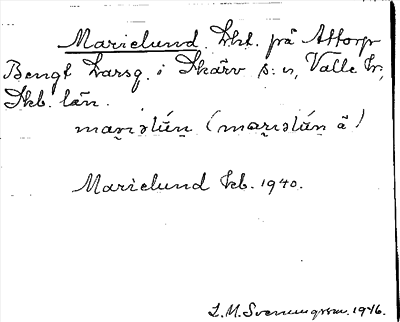 Marielund. Lht. på Attorp
Bengt Larsg. i Skärv s:n, Valle hr,
Skb. län.
mari̯əlún̯ (mari̯əlún̯ å)
Marielund kb. 1940.
L. M. Svenungsson. 1946.